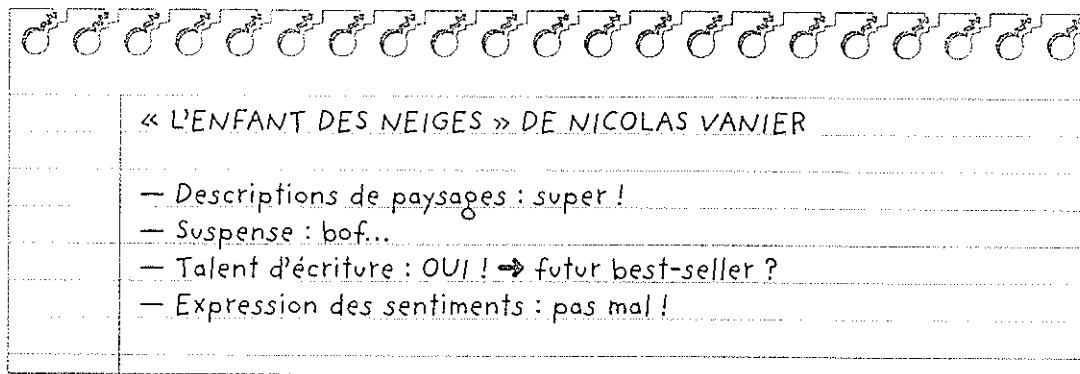 « L'ENFANT DES NEIGES » DE NICOLAS VANIER
— Descriptions de paysages : super !
— Suspense : bof...
— Talent d'écriture : OUI ! ➔ futur best-seller ?
— Expression des sentiments : pas mal !